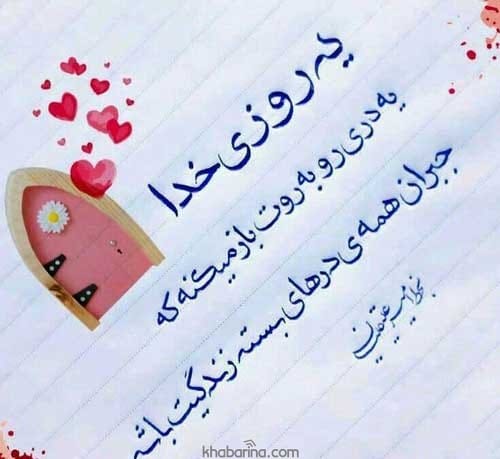 یه روزی خدا
یه دری رو به روت باز میکنه که
جبران همه ی درهای بسته زندگیت باشه
khabarina.com